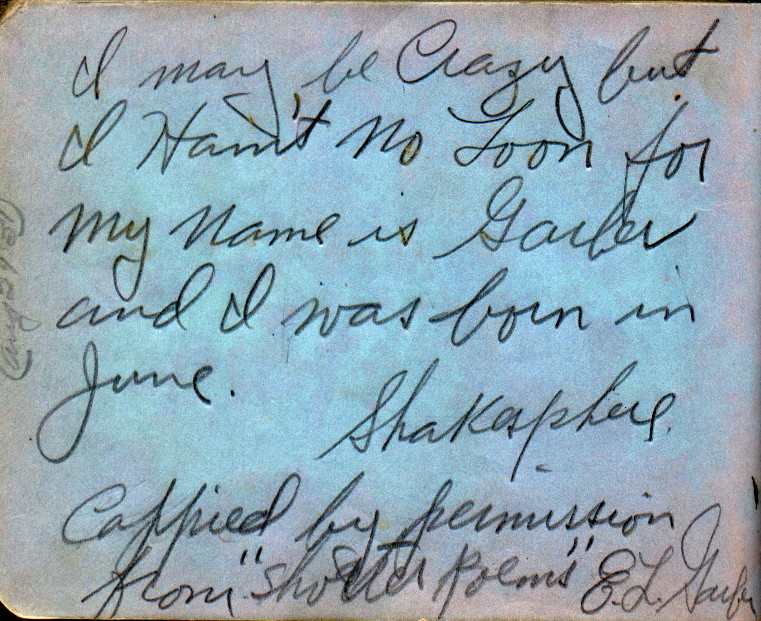 I may be Crazy but
I Hain't No Loon for
my Name is Garber
and I was born in
June.
Shakesphere.
Coppied by permission
from "shorter poems" E.L. Garber